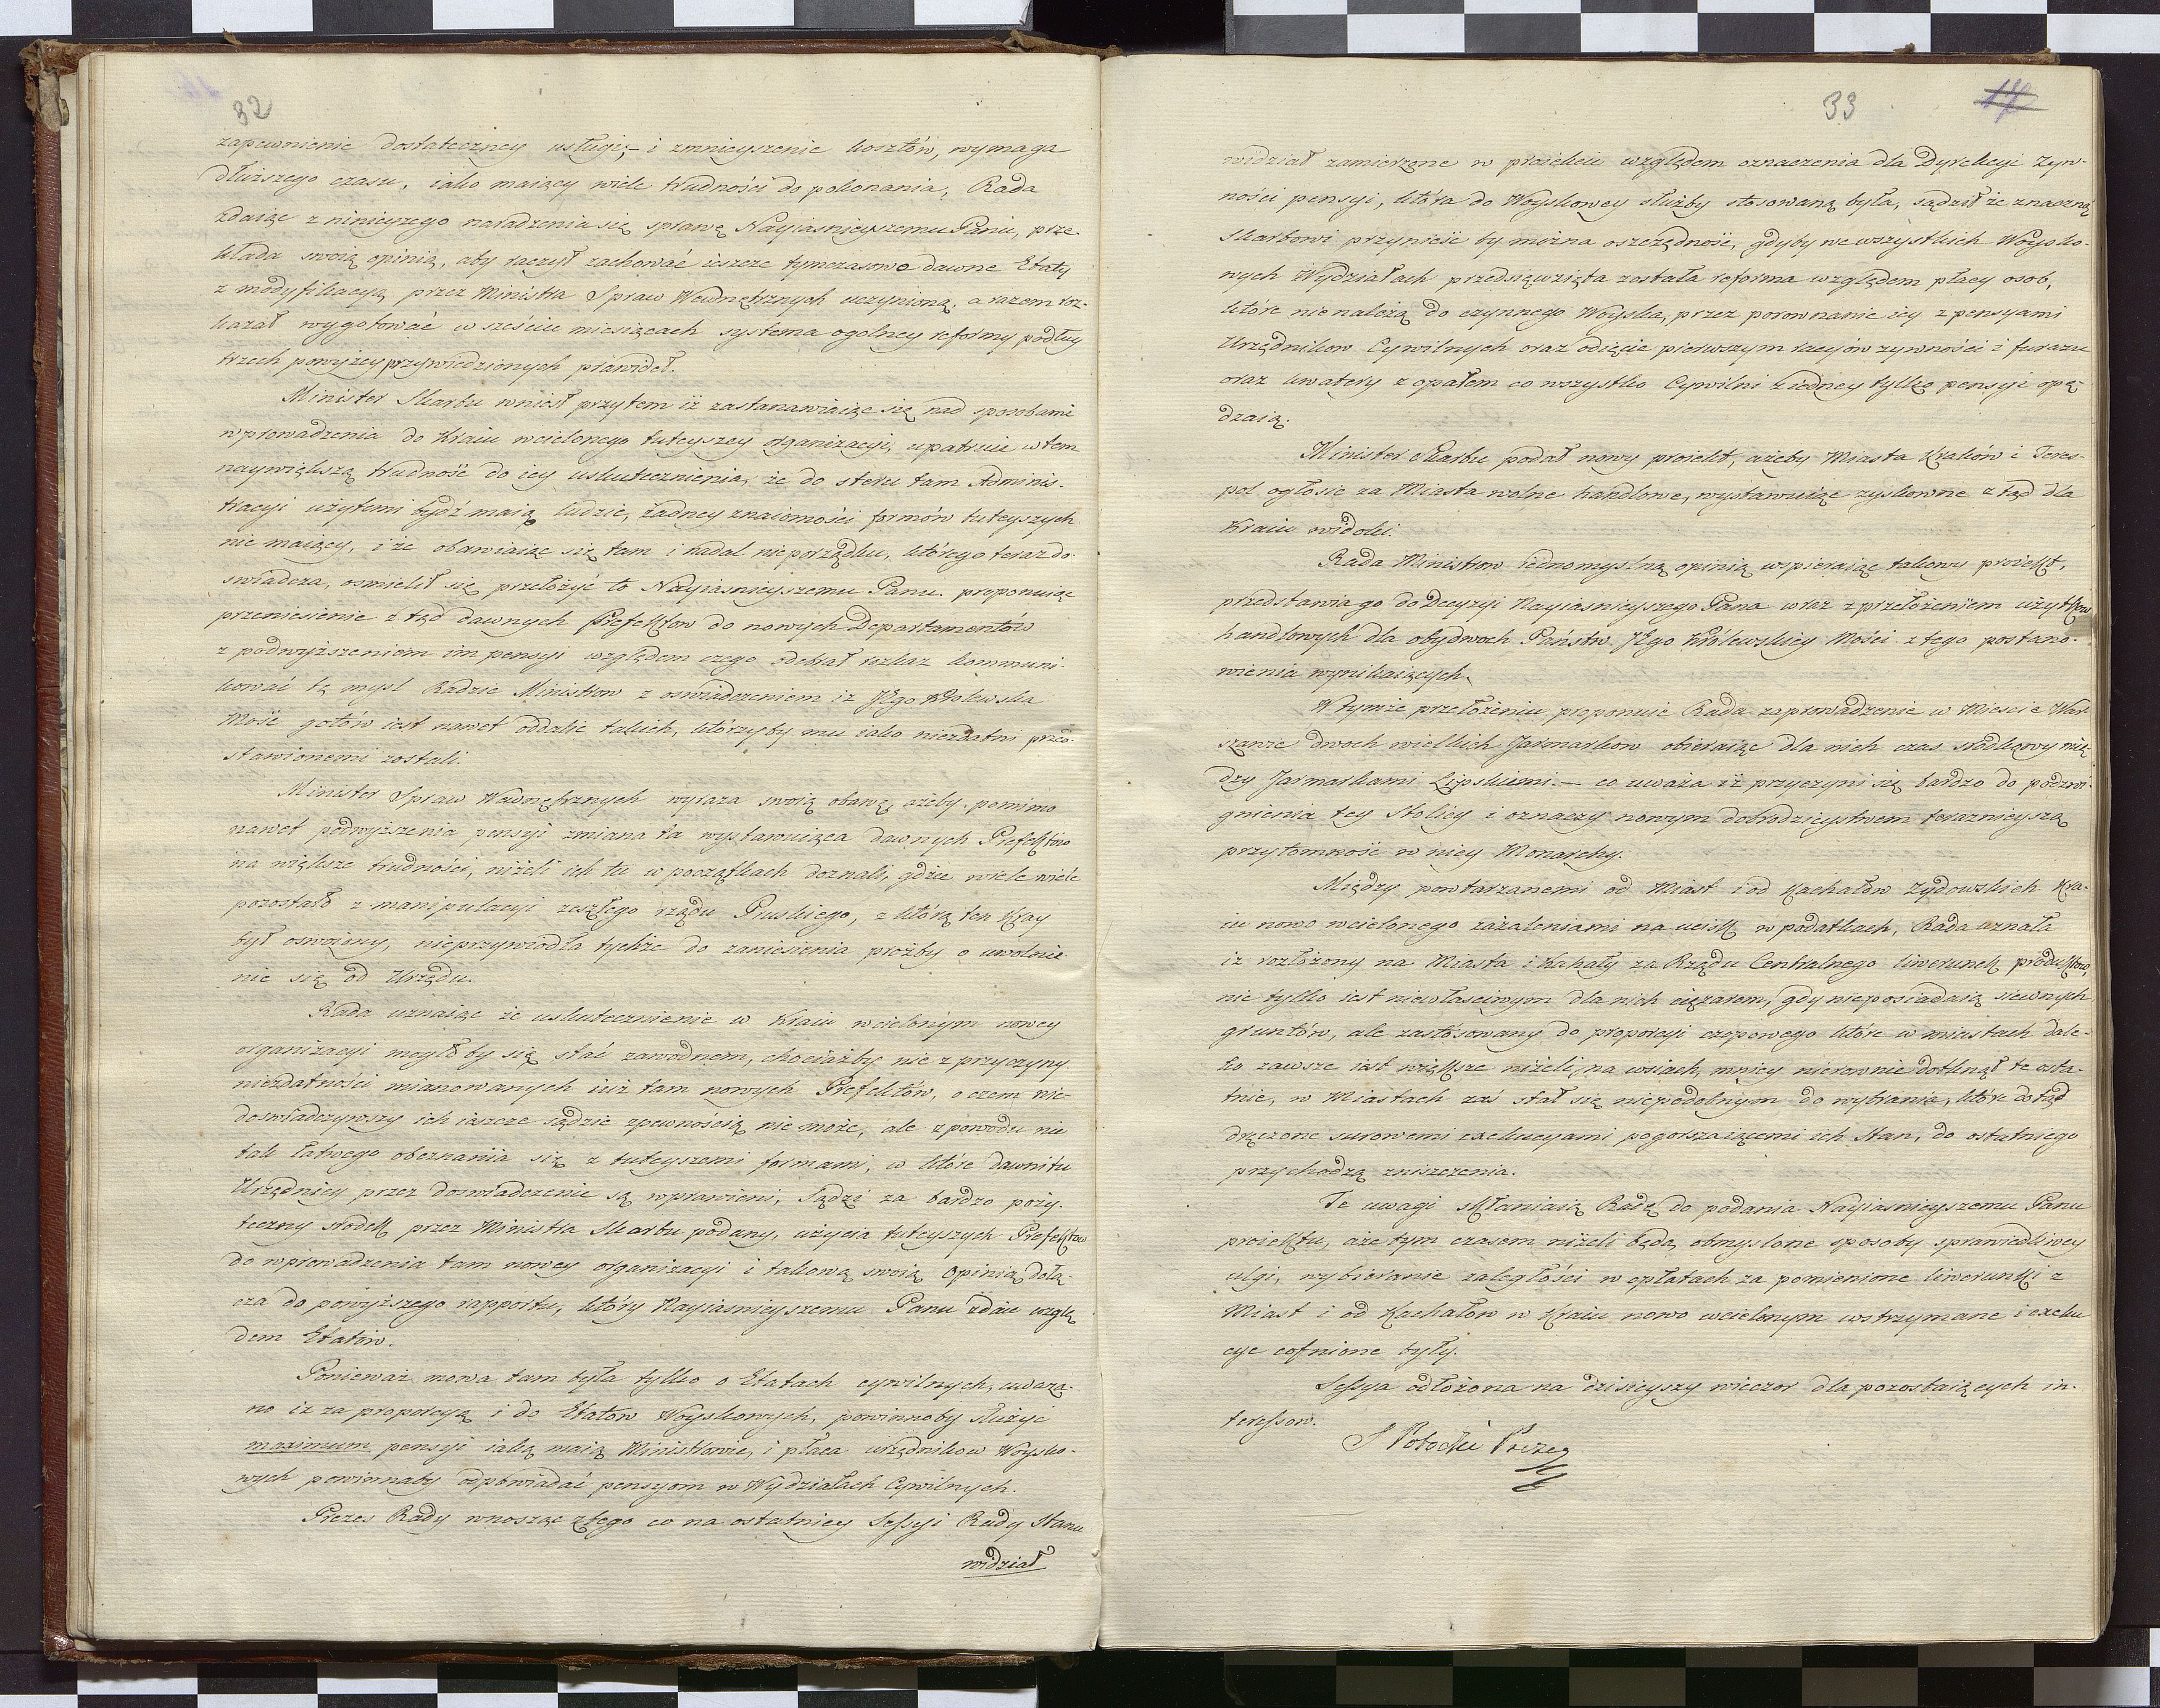 32
zapewnienie dostateczney usługi,- i zmnieyszenie kosztów, wymaga
dłuższego czasu, iako maiący wiele trudności do pokonania, Rada
zdaiąc z ninieyszego naradzenia się sprawę Nayiaśnieyszemu Panu, prze-
kłada swoią opinią, aby raczył zachować ieszcze tymczasowo dawne Etaty
z modyfikacyą przez Ministra Spraw Wewnętrznych uczynioną, a razem roz-
kazał wygotować w sześciu miesiącach systema ogolney reformy podług
trzech powyżey przywiedzionych prawideł.
Minister Skarbu wniosł przytem iż zastanawiaiąc się nad sposobami
wprowadzenia do Kraiu wcielonego tuteyszey organizacyi, upatruie w tem
naywiększą trudność do iey uskutecznienia, że do steru tam Adminis-
tracyi użytemi bydź maią ludzie, żadney znaiomości formów tuteyszych
nie maiący, i że obawiaiąc się tam i nadal nieporządku, którego teraz do-
swiadcza, osmielił się przełożyć to Nayiasnieyszemu Panu proponuiąc
przeniesienie z tąd dawnych Prefektow do nowych Departamentów
z podwyższeniem im pensyi względem czego odebrał rozkaz kommuni-
kować tę mysl Radzie Ministrow z oswiadczeniem iż JKgo Krolewska
Mość gotów iest nawet oddalić takich, którzyby mu iako niezdatni przed-
stawionemi zostali.
Minister Spraw Wewnętrznych wyraza swoią obawę, ażeby, pomimo
nawet podwyższenia pensyi zmiana ta wystawuiąca dawnych Prefektow
na większe trudności, niżeli ich tu w początkach doznali, gdzie wiele wiele
pozostało z manipulacyi zeszłego rządu Pruskiego, z którą ten Kray
był oswoiony, nieprzywiodła tychże do zaniesienia prożby o uwolnie-
nie się od Urzędu.
Rada uznaiąc że uskutecznienie w Kraiu wcielonym nowey
organizacyi mogło by się stać zawodnem, chociażby nie z przyczyny
niezdatności mianowanych iuż tam nowych Prefektów, o czem nie-
doswiadczywszy ich ieszcze sądzić zpewnością nie może, ale z powodu nie
tak łatwego obeznania się z tuteyszemi formami, w które dawni tu
Urzędnicy przez doswiadczenie są wprawieni, Sądzi za bardzo poży-
teczny srodek przez Ministra Skarbu podany, użycia tuteyszych Prefektow
do wprowadzenia tam nowey organizacyi i takową swoią Opinią dołą-
cza do powyższego rapportu, który Nayiasnieyszemu Panu zdaie wzglę
dem Etatów.
Ponieważ mowa tam była tylko o Etatach cywilnych, uważa-
no iż za proporcyą i do Etatow Woyskowych, powinnoby służyć
maximum pensyi iaką maią Ministrowie, i płaca urzędnikow Woysko-
wych powinnaby odpowiadać pensyom w Wydziałach Cywilnych.
Prezes Rady wnosząc ztego co na ostatniey Sessyi Rady Stanu
widział
33
widział zamierzone w proiekcie względem oznaczenia dla Dyrekcyi Żyw-
ności pensyi, która do Woyskowey służby stosowaną była, sądził że znaczną
Skarbowi przynieść by można oszczędność, gdyby we wszystkich Woysko-
wych Wydziałach przedsięwzięta została reforma względem płacy osob,
które nie należą do czynnego Woyska, przez porownanie iey z pensyami
Urzędnikow Cywilnych oraz odięcie pierwszym racyów zywności i furazu
oraz kwatery z opałem co wszystko Cywilni z iedney tylko pensyi opę-
dzaią.
Minister Skarbu podał nowy proiekt, ażeby Miasta Kraków i Teres-
pol ogłosic za Miasta wolne handlowe, wystawuiąc zyskowne z tąd dla
Kraiu widoki.
Rada Ministrow iednomyslną opinią wspieraiąc takowy proiekt,
przedstawia go do Decyzyi Nayiasnieyszego Pana wraz z przełożeniem użytkow
handlowych dla obydwoch Państw JKgo Królewskiey Mości z tego postano-
wienia wynikaiących.
W tymże przełożeniu proponuie Rada zaprowadzenie w Miescie War-
szawie dwoch wielkich Jarmarkow obieraiąc dla nich czas srodkowy mię
dzy Jarmarkami Lipskiemi.— co uważa iż przyczyni się bardzo do podzwi-
gnienia tey Stolicy i oznaczy nowym dobrodzieystwem teraznieyszą
przytomność w niey Monarchy.
Między powtarzanemi od Miast i od Kachałów Zydowskich Kra-
iu nowo wcielonego zażaleniami na ucisk w podatkach, Rada uznała
iż rozłożony na Miasta i Kahały za Rządu Centralnego liwerunek produktow,
nie tylko iest niewłasciwym dla nich ciężarem, gdy nieposiadaią siewnych
gruntów, ale zastósowany do proporcyi czopowego które w miastach dale-
ko zawsze iest większe niżeli na wsiach, mniey nierownie dotknął te osta-
tnie, w Miastach zaś stał się niepodobnym do wybrania, które dotąd
dręczone surowemi exekucyami pogorszaiącemi ich Stan, do ostatniego
przychodzą zniszczenia.
Te uwagi skłaniaią Radę do podania Nayiasnieyszemu Panu
proiektu, aże tym czasem niżeli będą obmyslone sposoby sprawiedliwey
ulgi, wybieranie zaległości w opłatach za pomienione liwerunki z
Miast i od Kachałow w Kraiu nowo wcielonym wstrzymane i exeku
cye cofnione były.
Sessya odłożona na dzisieyszy wieczor dla pozostaiących in-
teressow.
S Potocki Prezes